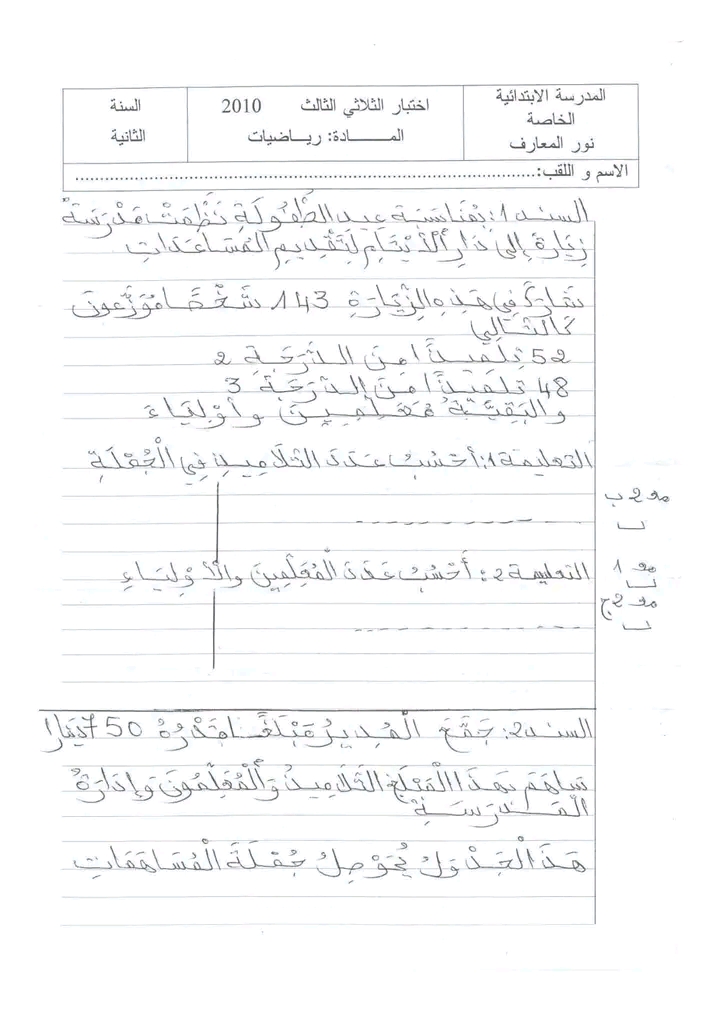 المدرسة الابتدائية الخاصة نور المعارف
اختبار الثلاثي الثالث 2010
المـــــادة: رياضيات
السنة الثانية
الاسم و اللقب:......................................................................
السند 1: بِمُنَاسَبَةِ عِيدِ الطُّفُولَةِ نَظَّمَتْ مَدْرَسَةٌ
زِيَارَةً إِلَى دَارِ الْأَيْتَامِ لِتَقْدِيمِ الْمُسَاعَدَاتِ
شَارَكَ فِي هَذِهِ الزِّيَارَةِ 143 شَخْصًا مُوَزَّعُونَ
كَالتَّالِي
52 تِلْمِيذًا مِنَ الدَّرَجَةِ 2
48 تِلْمِيذًا مِنَ الدَّرَجَةِ 3
وَالْبَقِيَّةُ مُعَلِّمِينَ وَأَوْلِيَاءَ
التعليمة 1: أَحْسُبُ عَدَدَ التَّلَامِيذِ فِي الْجُمْلَةِ
مع 2 ب
التعليمة 2: أَحْسُبُ عَدَدَ الْمُعَلِّمِينَ وَالْأَوْلِيَاءِ
مع 1
مع 2 ج
السند 2: جَمَّعَ الْمُدِيرُ مَبْلَغًا قَدْرُهُ 750 دِينَارًا
سَاهَمَ بِهَذَا الْمَبْلَغِ التَّلَامِيذُ وَالْمُعَلِّمُونَ وَإِدَارَةُ
الْمَدْرَسَةِ
هَذَا الْجَدْوَلُ يُحَوْصِلُ جُمْلَةَ الْمُسَاهَمَاتِ